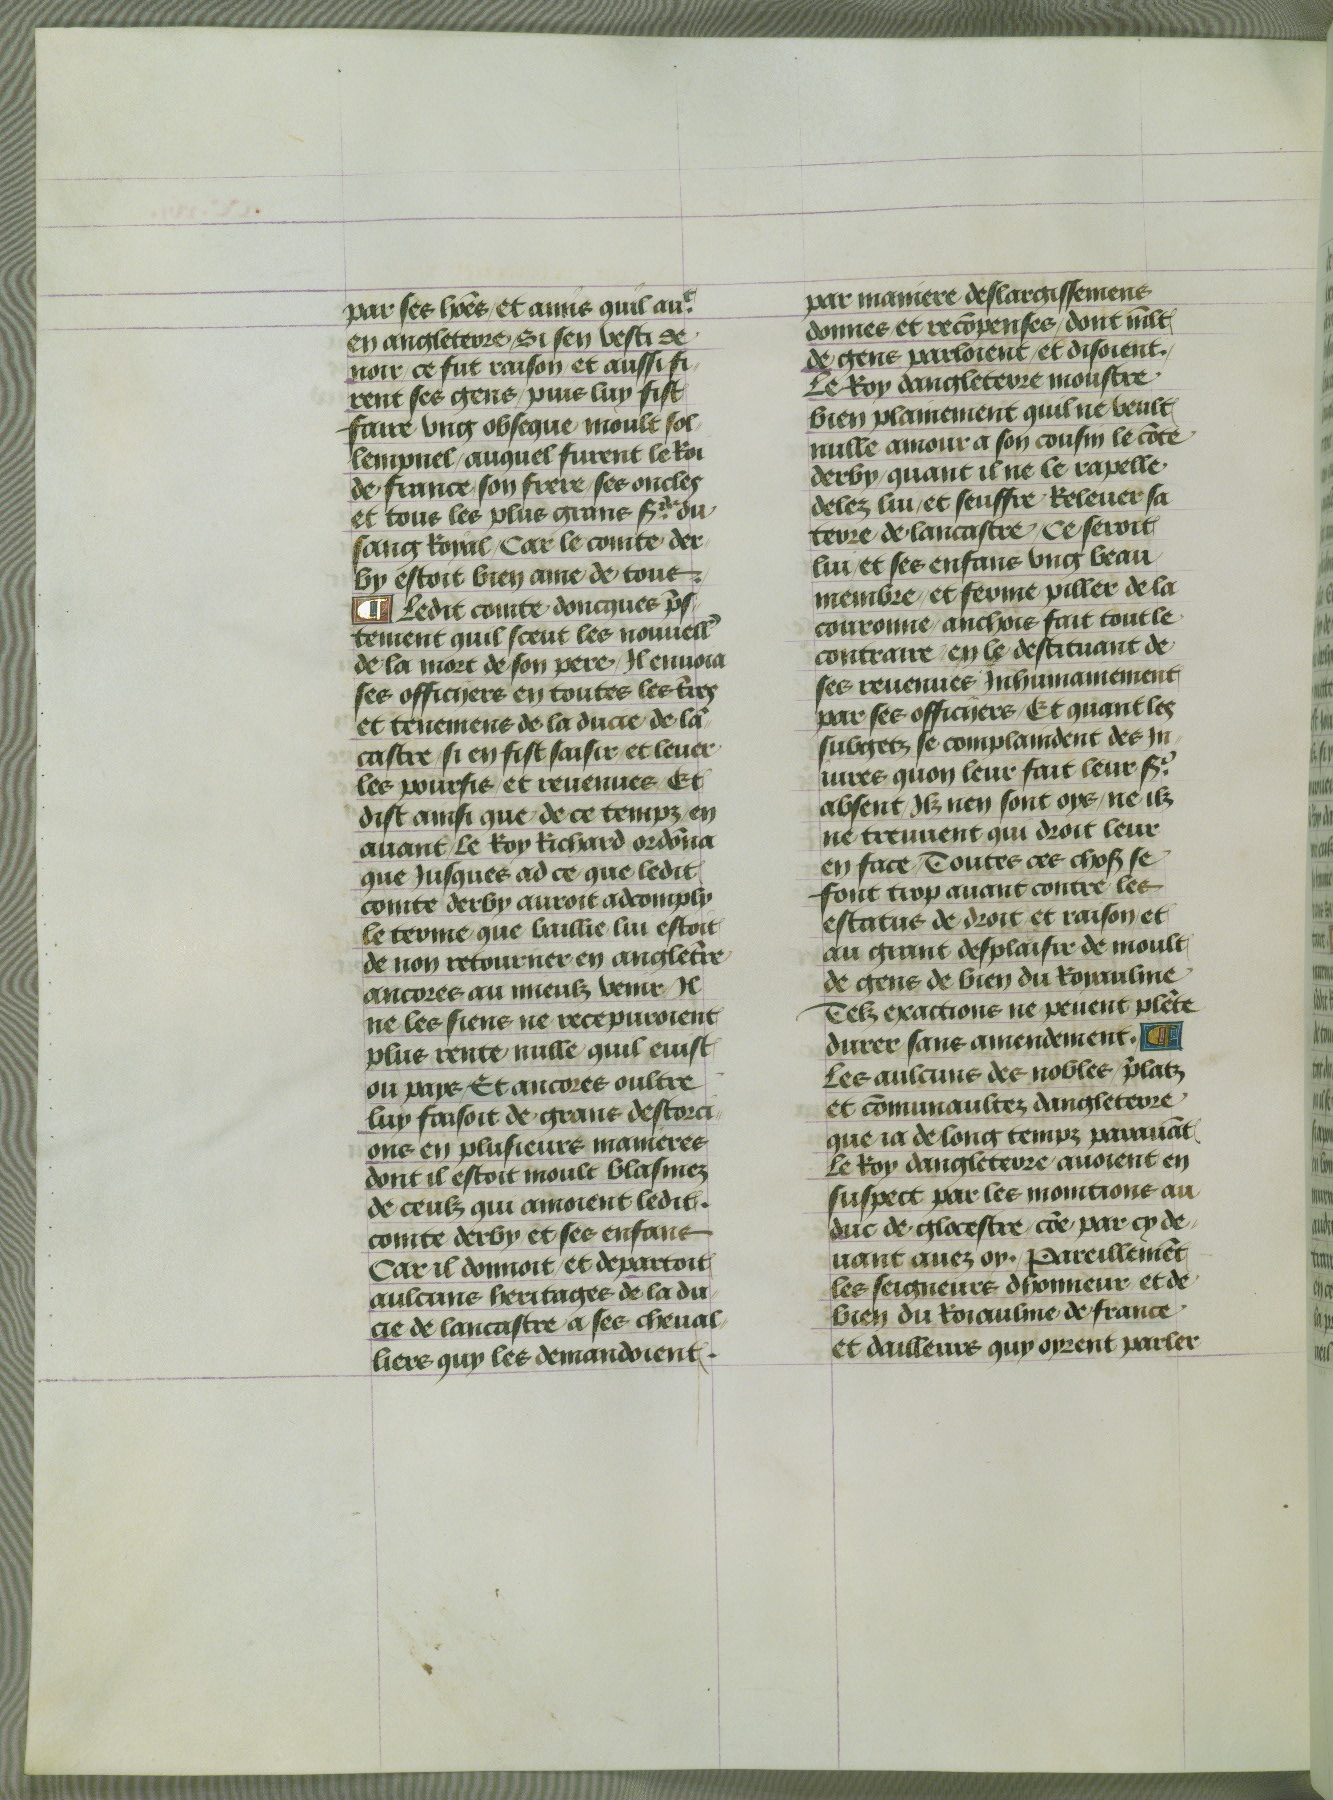 par ses hoēs / et amis quil auͨ.
en angleterre / Si sen vesti de
noir / ce fut raison et aussi fi
rent ses gens / puis luy fist
faire vng obseque moult sol
lempnel / auquel furent le Roi
de france son frere / ses oncles
et tous les plus grans sʳˢ du
sang Royal / Car le comte der
by estoit bien ame de tous.
¶ Ledit comte doncques p̄s
tement quil sceut les nouuell'
de la mort de son pere / Il enuoia
ses officiers en toutes les t̄res
et tenemens de la ducie de lā
castre / si en fist saisir et leuer
les pourfis et reuenues Et
dist ainsi que de ce tempz en
auant / Le Roy Richard ordōna
que Jusques ad ce que ledit
comte derby auroit adcomply
le terme que baillie lui estoit
de non retourner en anglet̄re
ancores au mieulz venir Il
ne les siens ne receputroient
plus rente nulle quil euist
ou pays / Et ancores oultre
luy faisoit de grans destorci
ons en plusieurs manieres
dont il estoit moult blasmez
de ceulz qui amoient ledit.
comte derby et ses enfans
Car il donnoit / et departoit
aulcuns heritages de la du
cie de lancastre a ses cheual
liers quy les demandoient.
par maniere deslargissemens
donnes et recōpenses / dont m̄lt
de gens parloient / et disoient.
Le Roy dangleterre monstre
bien plainement quil ne veult
nulle amour a son cousin le cōte
derby / quant il ne le rapelle
delez lui / et seuffre Releuer sa
terre de lancastre / Ce seroit
lui / et ses enfans vng beau
membre / et ferme piller de la
couronne / anchois fait tout le
contraire / en le destituant de
ses reuenues Inhumainement
par ses officiers / Et quant les
subgetz se complaindent des In
iures quon leur fait leur sʳ
absent Ilz nen sont oys / ne ilz
ne treuuent qui droit leur
en face / Toutes ces chos̄ se
font trop auant contre les
estatus de droit et raison et
au grant desplaisir de moult
de gens de bien du Royaulme
Telz exactions ne peuent plēte
durer sans amendement. ¶
Les aulcuns des nobles / p̄latz
et cōmunaultez dangleterre
que ia de long tempz parauāt
Le Roy dangleterre auoient en
suspect par les monitions au
duc de glocestre / cōe par cy de
uant auez oy. Pareillemēt
les seigneurs dhonneur et de
bien du Roiaulme de france
et dailleurs quy oyrent parler